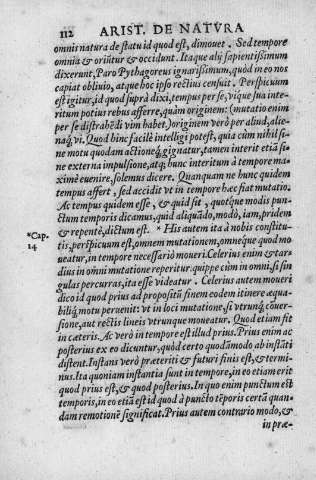 112 ARIST. DE NATVRA
omnis natura de statu id quod est, dimouet. Sed tempore
omnia & oriūtur & occidunt. Itaque alij sapientissimum
dixerunt, Paro Pythagoreus ignarissimum, quòd in eo nos
capiat obliuio, atque hoc ipso rectius censuit. Perspicuum
est igitur, id quod suprà dixi, tempus per se, vique sua inte-
ritum potius rebus afferre, quàm originem: (mutatio enim
per se distrahēdi vim habet,) originem verò per aliud, alie-
naq; vi. Quod hinc facilè intelligi potest, quia cùm nihil si-
ne motu quodam actioneq; gignatur, tamen interit etiā si-
ne externa impulsione, atq; hunc interitum à tempore ma-
ximè euenire, solemus dicere. Quanquam ne hunc quidem
tempus affert, sed accidit vt in tempore hæc fiat mutatio.
Ac tempus quidem esse, & quid sit, quotque modis pun-
ctum temporis dicamus, quid aliquādo, modò, iam, pridem
*Cap. & repentè, dictum est. * His autem ita à nobis constitu-
14 tis, perspicuum est, omnem mutationem, omneque quod mo
ueatur, in tempore necessariò moueri. Celerius enim & tar-
dius in omni mutatione reperitur: quippe cùm in omni, si sin
gulas percurras, ita esse videatur. Celerius autem moueri
dico id quod prius ad propositū sinem eodem itinere æqua-
biliq; motu peruenit: vt in loci mutatione, si vtrunq; cōuer-
sione, aut rectis lineis vtrunque moueatur. Quod etiam fit
in cæteris. Ac verò in tempore est illud prius. Prius enim ac
posterius ex eo dicuntur, quòd certo quodāmodo ab instāti
distent. Instans verò præteriti & futuri finis est, & termi-
nus. Ita quoniam instantia sunt in tempore, in eo etiam erit
quod prius est, & quod posterius. In quo enim punctum est
temporis, in eo etiā est id quod à pūcto tēporis certā quan-
dam remotionē significat. Prius autem contrario modo, &
in præ-